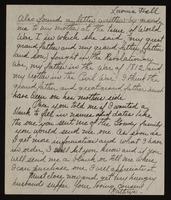 Lavina Hall
Also found a letter written by
to my mother at the time of World
War I in which she said, "my great
grandfather and my grand father's father
and sons fought in the Revolutionary
war, my father in the war of 1812, and
my brother in the Civil War." I think the
grandfather and great grandfather must
have been on her mother's side.
Once you told me if I wanted a
blank to fill in names and dates like
the one you sent me of the family
you would send me one. As soon as
I get more information and what I have
in order, I will let you know and if you
will send me a blank or tell me where
I can purchase one, I will appreciate it.
Must close now, and get my hungry
husband supper. Your loving cousin